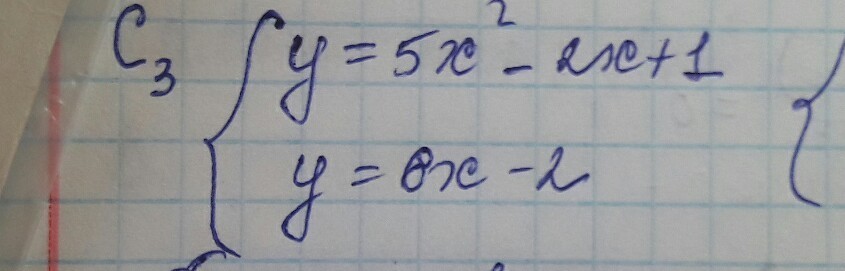 C₃ { y = 5x² - 2x + 1
y = 6x - 2